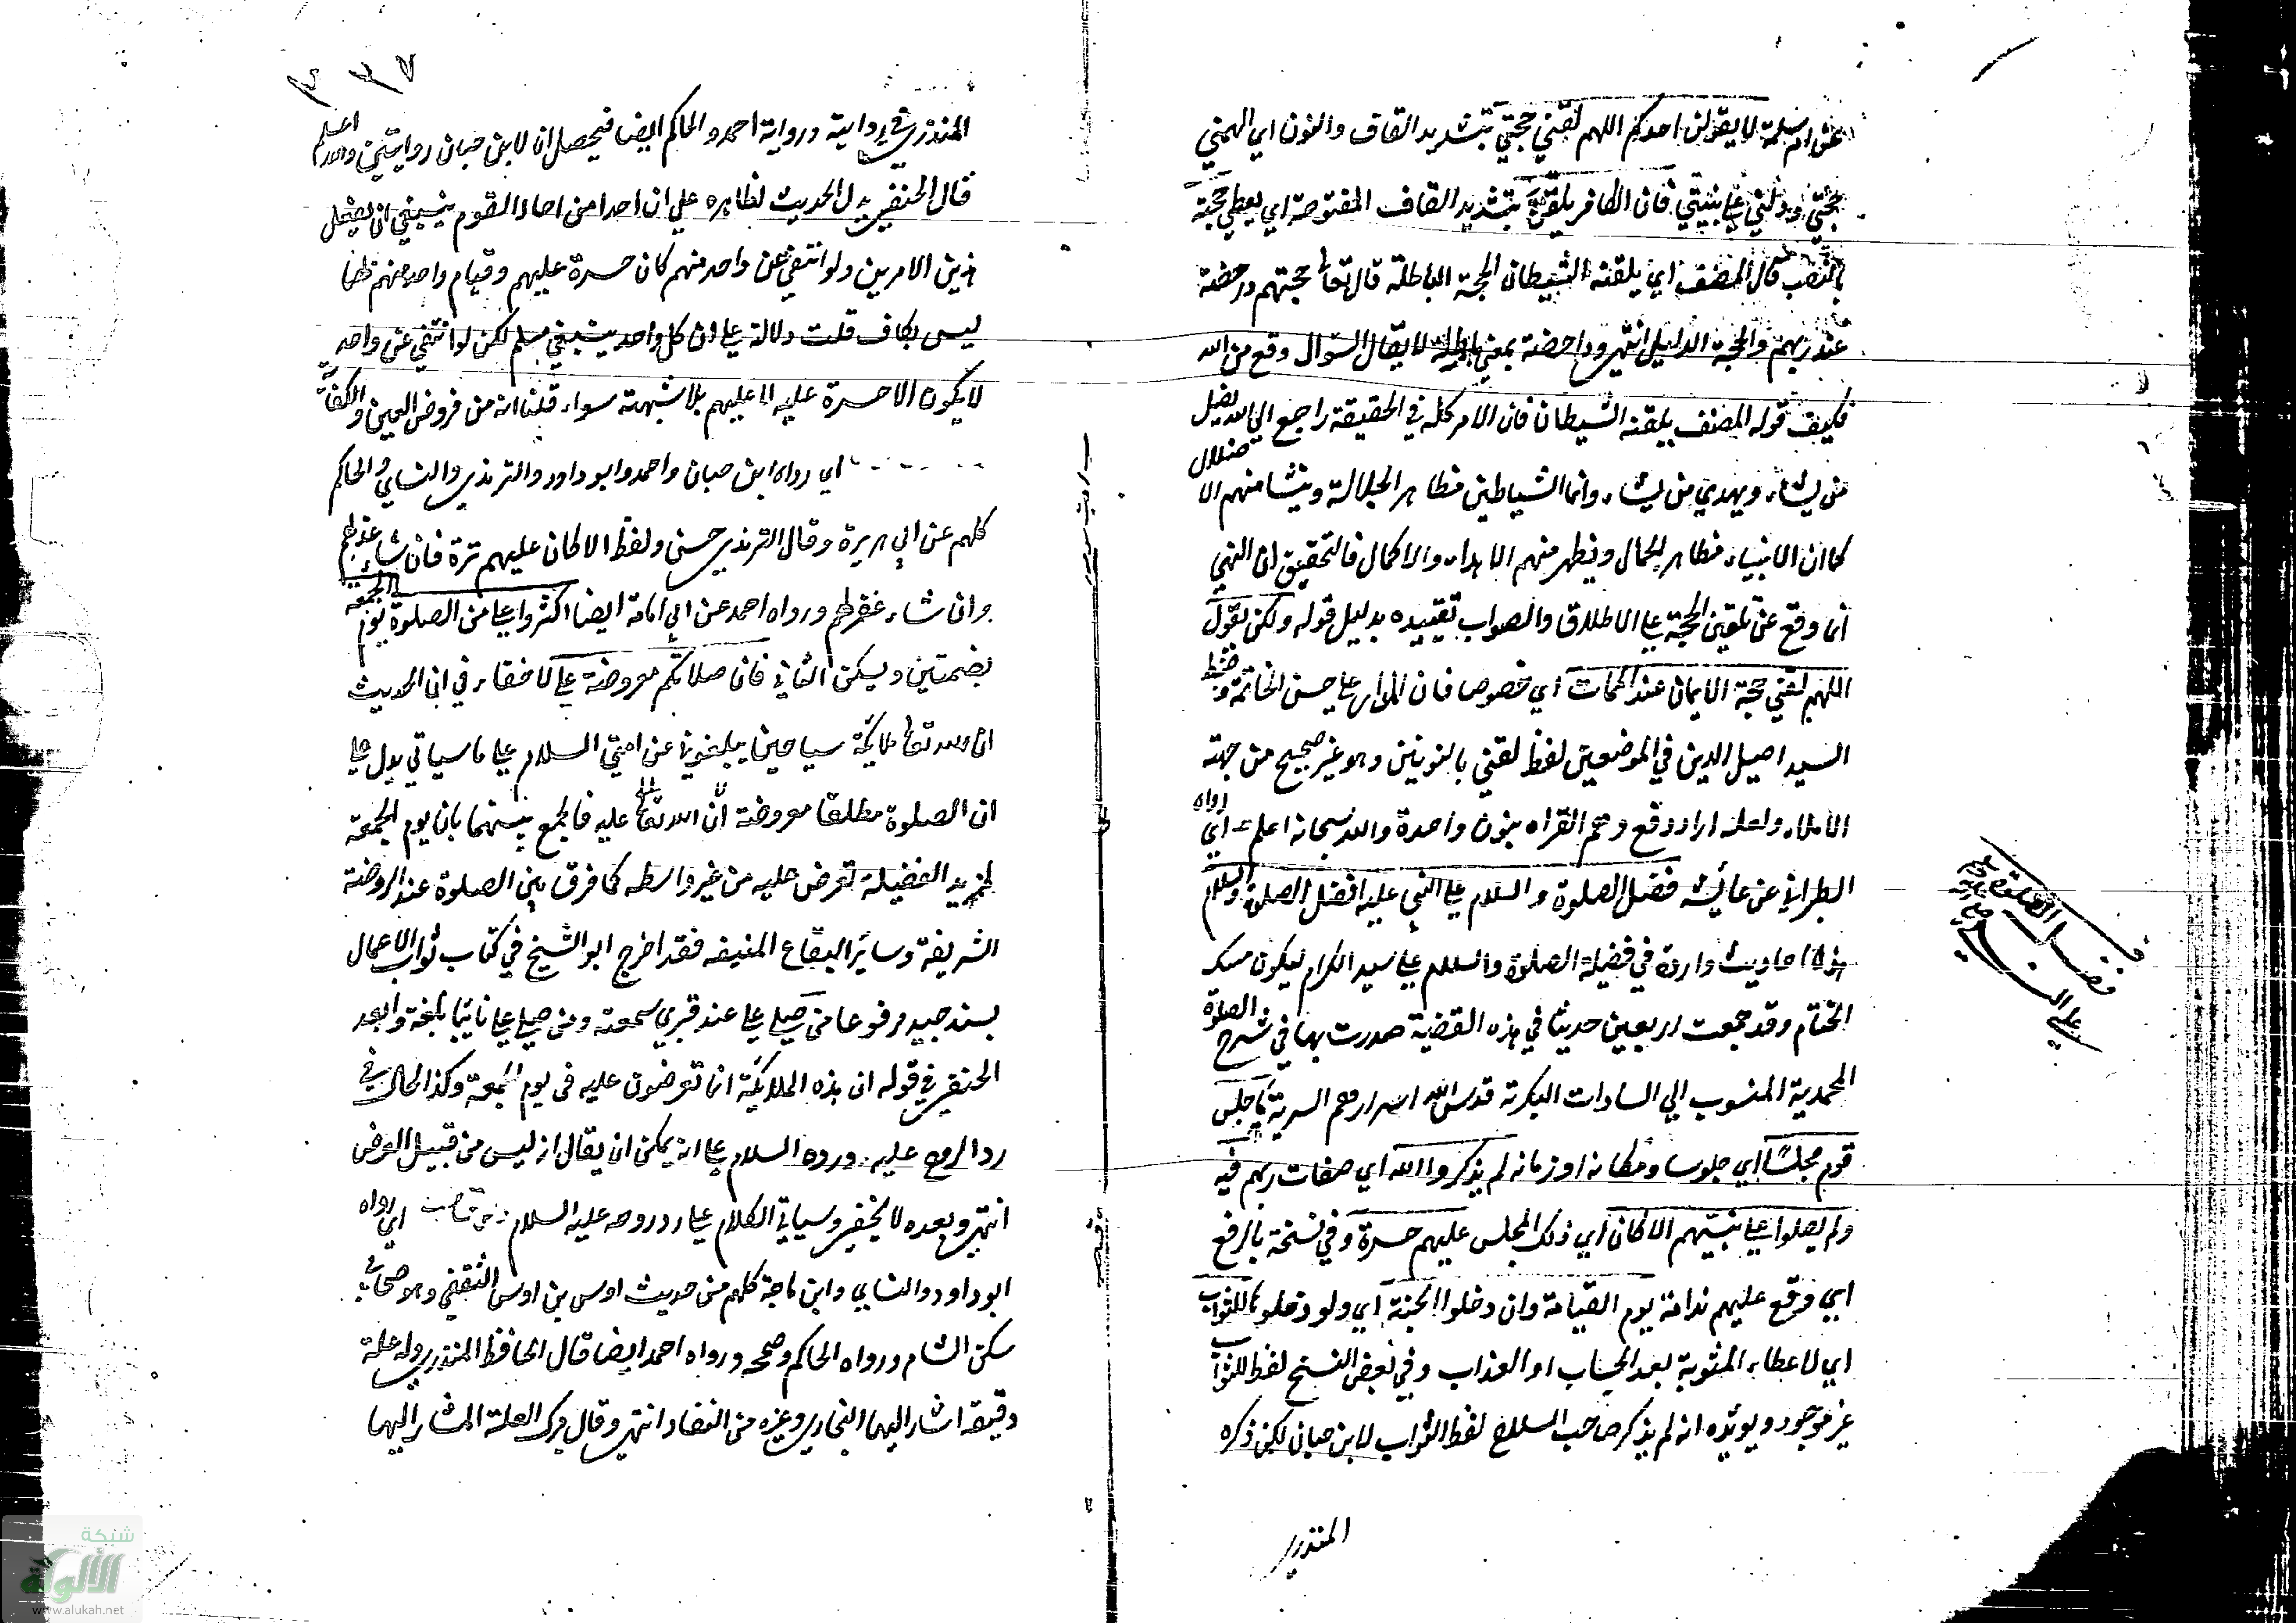 عن ام سلمة لا يقولن احدكم اللهم لقني حجتي بتشديد القاف والنون اي الهمني
حجتي ودلني علي بينتي فان الكافر يلقن بتشديد القاف المفتوحة اي يعطي حجته
بالنصب قال المصنف اي يلقنه الشيطان الحجة الباطلة قال تعا حجتهم داحضة
عند ربهم والحجة الدليل انتهي وداحضة بمعني باطلة لا يقال السؤال وقع من الله
فكيف قوله المصنف يلقنه الشيطان فان الامر كله في الحقيقة راجع الي الله يضل
من يشاء ويهدي من يشاء وانما الشياطين مظاهر الجلالة وينشا منهم الا ضلال
كما ان الانبياء مظاهر الجمال ويظهر منهم الاهداء والاكمال فالتحقيق ان النهي
انما وقع عن تلقين الحجة علي الاطلاق والصواب تقييده بدليل قوله ولكن ليقول
اللهم لقني حجة الايمان عند الممات اي خصوصا فان المدار علي حسن الخاتمة وضبط
السيد اصيل الدين في الموضعين لفظ لقني بالنونين وهو غير صحيح من جهة
الاملاء ولعله اراد دفع وهم القراه بنون واحدة والله سبحانه اعلم اي رواه
الطبراني عن عائشه فضل الصلوة والسلام علي النبي عليه افضل الصلوة والسلام
هذه احاديث واردة في فضيلة الصلوة والسلام علي سيد الكرام ليكون مسك
الختام وقد جمعت اربعين حديثا في هذه القضية صدرت بها في شرح الصلوة
المحمدية المنسوب الي السادات البكرية قدس الله اسرارهم السرية ما جلس
قوم مجلسا اي جلوسا ومكانا او زمانه لم يذكروا الله اي صفات ربهم فيه
ولم يصلوا علي نبيهم الا كان اي ذلك المجلس عليهم حسرة وفي نسخة بالرفع
اي وقع عليهم ندامة يوم القيامة وان دخلوا الجنة اي ولو دخلوها للثواب
اي لاعطاء المثوبة بعد الحساب او العذاب وفي بعض النسخ لفظ للثواب
غير موجود ويوئده انه لم يذكر صاحب السلاح لفظ الثواب لابن حبان لكن ذكره
المنذري
فضل الصلوة
علي النبي
صلي الله عليه
٣٣٧
المنذري في رواية ورواية احمد والحاكم ايضا فيحصل ان لابن حبان روايتين والله اعلم
قال الحنفي يدل الحديث بظاهره علي ان احدا من احاد القوم ينبغي ان يفعل
هذين الامرين ولو انتفي عن واحد منهم كان حسرة عليهم وقيام واحد منهم بهما
ليس بكاف قلت دلالة علي ان كل واحد ينبغي مسلم لكن لو انتفي عن واحد
لا يكون الا حسرة عليه لا عليهم بلا شبهة سواء قلنا انه من فروض العين والكفاية
اي رواه ابن حبان واحمد وابو داود والترمذي والنسائي والحاكم
كلهم عن ابي هريرة وقال الترمذي حسن ولفظ الا كان عليهم ترة فان شاء عذبهم
وان شاء غفر لهم ورواه احمد عن ابي امامة ايضا اكثروا علي من الصلوة يوم الجمعة
بضمتين ويسكن الثاني فان صلاتكم معروضة علي لا خفاء في ان الحديث
ان لله تعا ملائكة سياحين يبلغوني عن امتي السلام علي ما سياتي يدل علي
ان الصلوة مطلقا معروضة عليه فالجمع بينهما بان يوم الجمعة
لمزيد الفضيلة تعرض عليه من غير واسطه كما فرق بين الصلوة عند الروضة
الشريفة وسائر البقاع المنيفه فقد اخرج ابو الشيخ في كتاب ثواب الاعمال
بسند جيد مرفوعا من صلي علي عند قبري سمعته ومن صلي علي نائيا بلغته وابعد
الحنفي في قوله ان هذه الملائكة انما تعرضون عليه في يوم الجمعة وكذا الحال في
رد الروح عليه ورده السلام علي انه يمكن ان يقال انه ليس من قبيل العرض
انتهي وبعده لا يخفي وسياتي الكلام علي رد روحه عليه السلام اي رواه
ابو داود والنسائي وابن ماجة كلهم من حديث اوس بن اوس الثقفي وهو صحابي
سكن الشام ورواه الحاكم وصححه ورواه احمد ايضا قال الحافظ المنذري وله علة
دقيقة اشار اليها البخاري وغيره من النقاد انتهي وقال ميرك العلة المشار اليها
شبكة
الألوكة
www.alukah.net